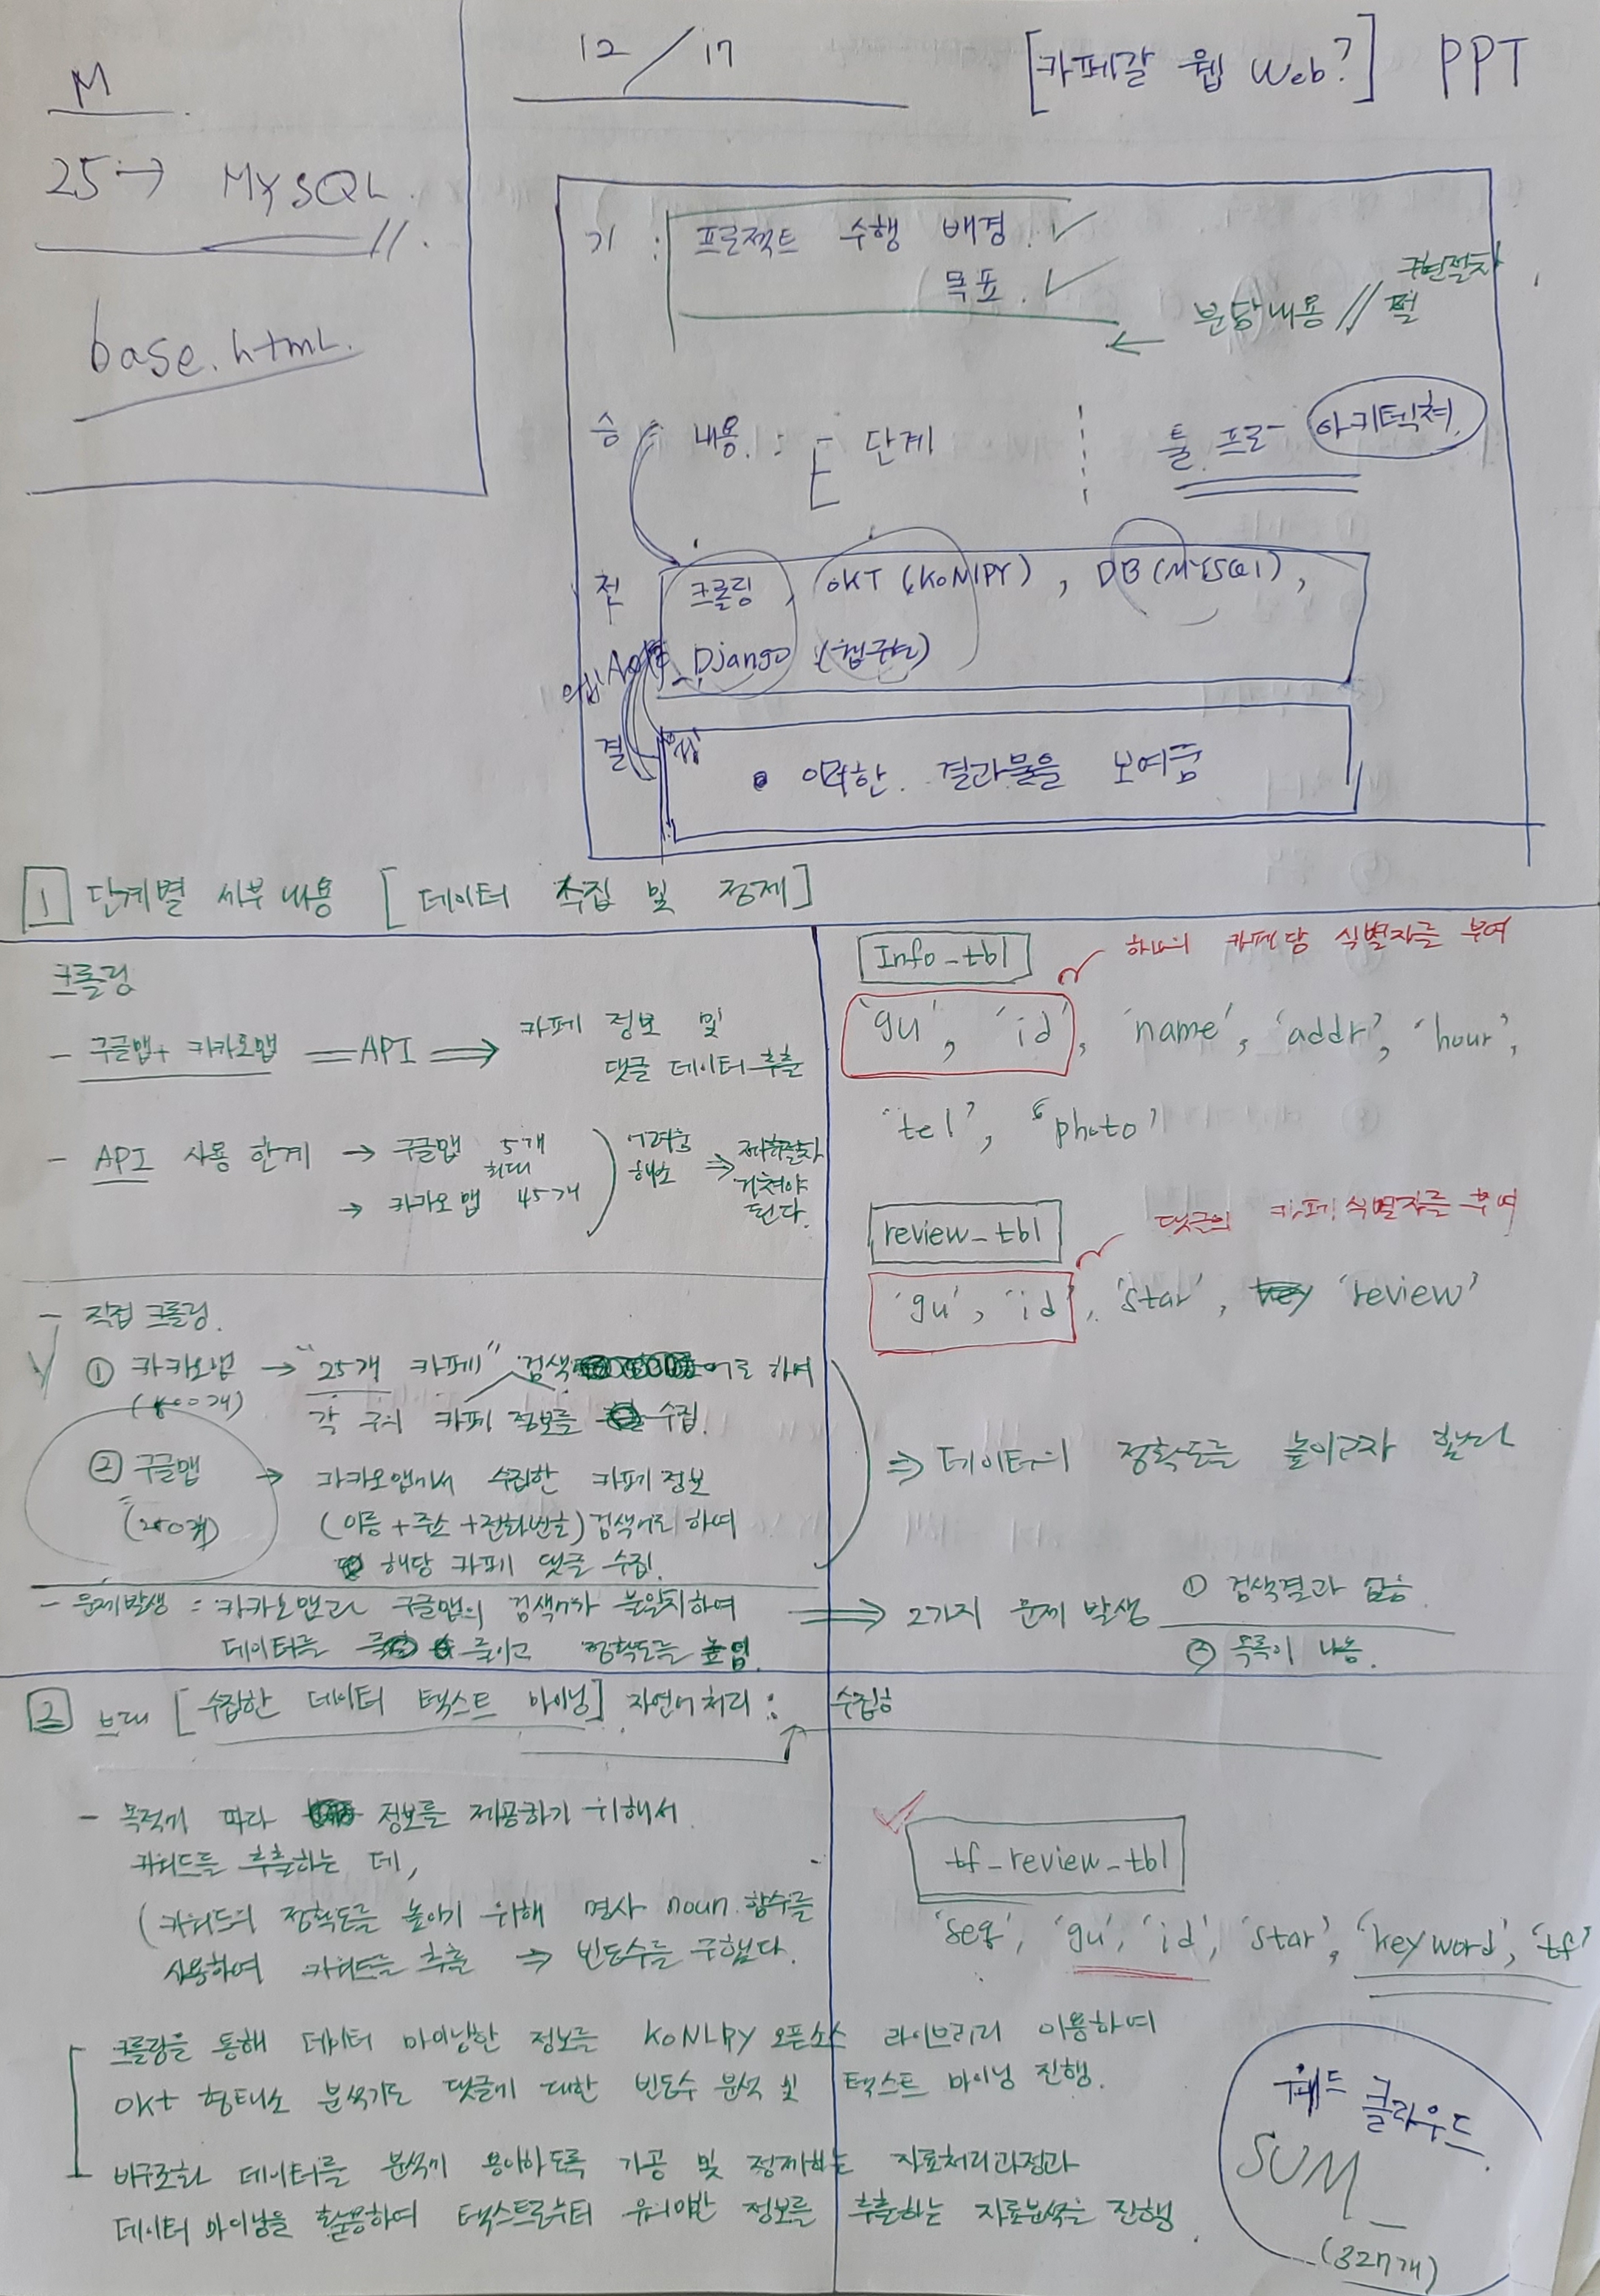 M
25 → MYSQL.
base.html.
12 / 17
[카페갈 웹 Web?] PPT
기 : 프로젝트 수행 배경.
목표.
분담내용 // 구현절차
승 : 내용. : 단계
툴. 프로- 아키텍쳐.
전 크롤링, OKT (KoNlPY), DB (MYSQl),
Django (웹구현)
결
이러한. 결과물을 보여줌
1 단계별 세부내용 [데이터 수집 및 정제]
크롤링
- 구글맵+ 카카오맵 = API ⇒ 카페 정보 및
댓글 데이터 추출
- API 사용 한계 → 구글맵 5개
최대
→ 카카오맵 45개
어려움
해소
⇒
거쳐야
된다.
- 직접 크롤링.
① 카카오맵 → "25개 카페" 검색어로 하여
각 구의 카페 정보를 수집.
② 구글맵 → 카카오맵에서 수집한 카페 정보
(250개) (이름+주소+전화번호) 검색어로 하여
해당 카페 댓글 수집.
- 문제발생 : 카카오맵과 구글맵의 검색어가 불일치하여
데이터를 줄이고 정확도를 높임.
Info_tbl
하나의 카페당 식별자를 부여
'gu', 'id', 'name', 'addr', 'hour',
'tel', 'photo'
review_tbl
댓글의 카페 식별자를 부여
'gu', 'id', 'star', 'review'
⇒ 데이터의 정확도를 높이고자 했다
⇒ 2가지 문제 발생 ① 검색결과 없음
② 목록이 나옴.
2 [수집한 데이터 텍스트 마이닝] 자연어처리 :
- 목적에 따라 정보를 제공하기 위해서
키워드를 추출하는 데,
(키워드의 정확도를 높이기 위해 명사 noun 함수를
사용하여 키워드를 추출 → 빈도수를 구했다.
tf_review_tbl
'seq', 'gu', 'id', 'star', 'keyword', 'tf'
크롤링을 통해 데이터 마이닝한 정보를 KoNLPy 오픈소스 라이브러리 이용하여
OKt 형태소 분석기로 댓글에 대한 빈도수 분석 및 텍스트 마이닝 진행.
비구조화 데이터를 분석이 용이하도록 가공 및 정제하는 자료처리과정과
데이터 마이닝을 활용하여 텍스트로부터 유의미한 정보를 추출하는 자료분석을 진행.
워드 클라우드.
SUM_
(327개)